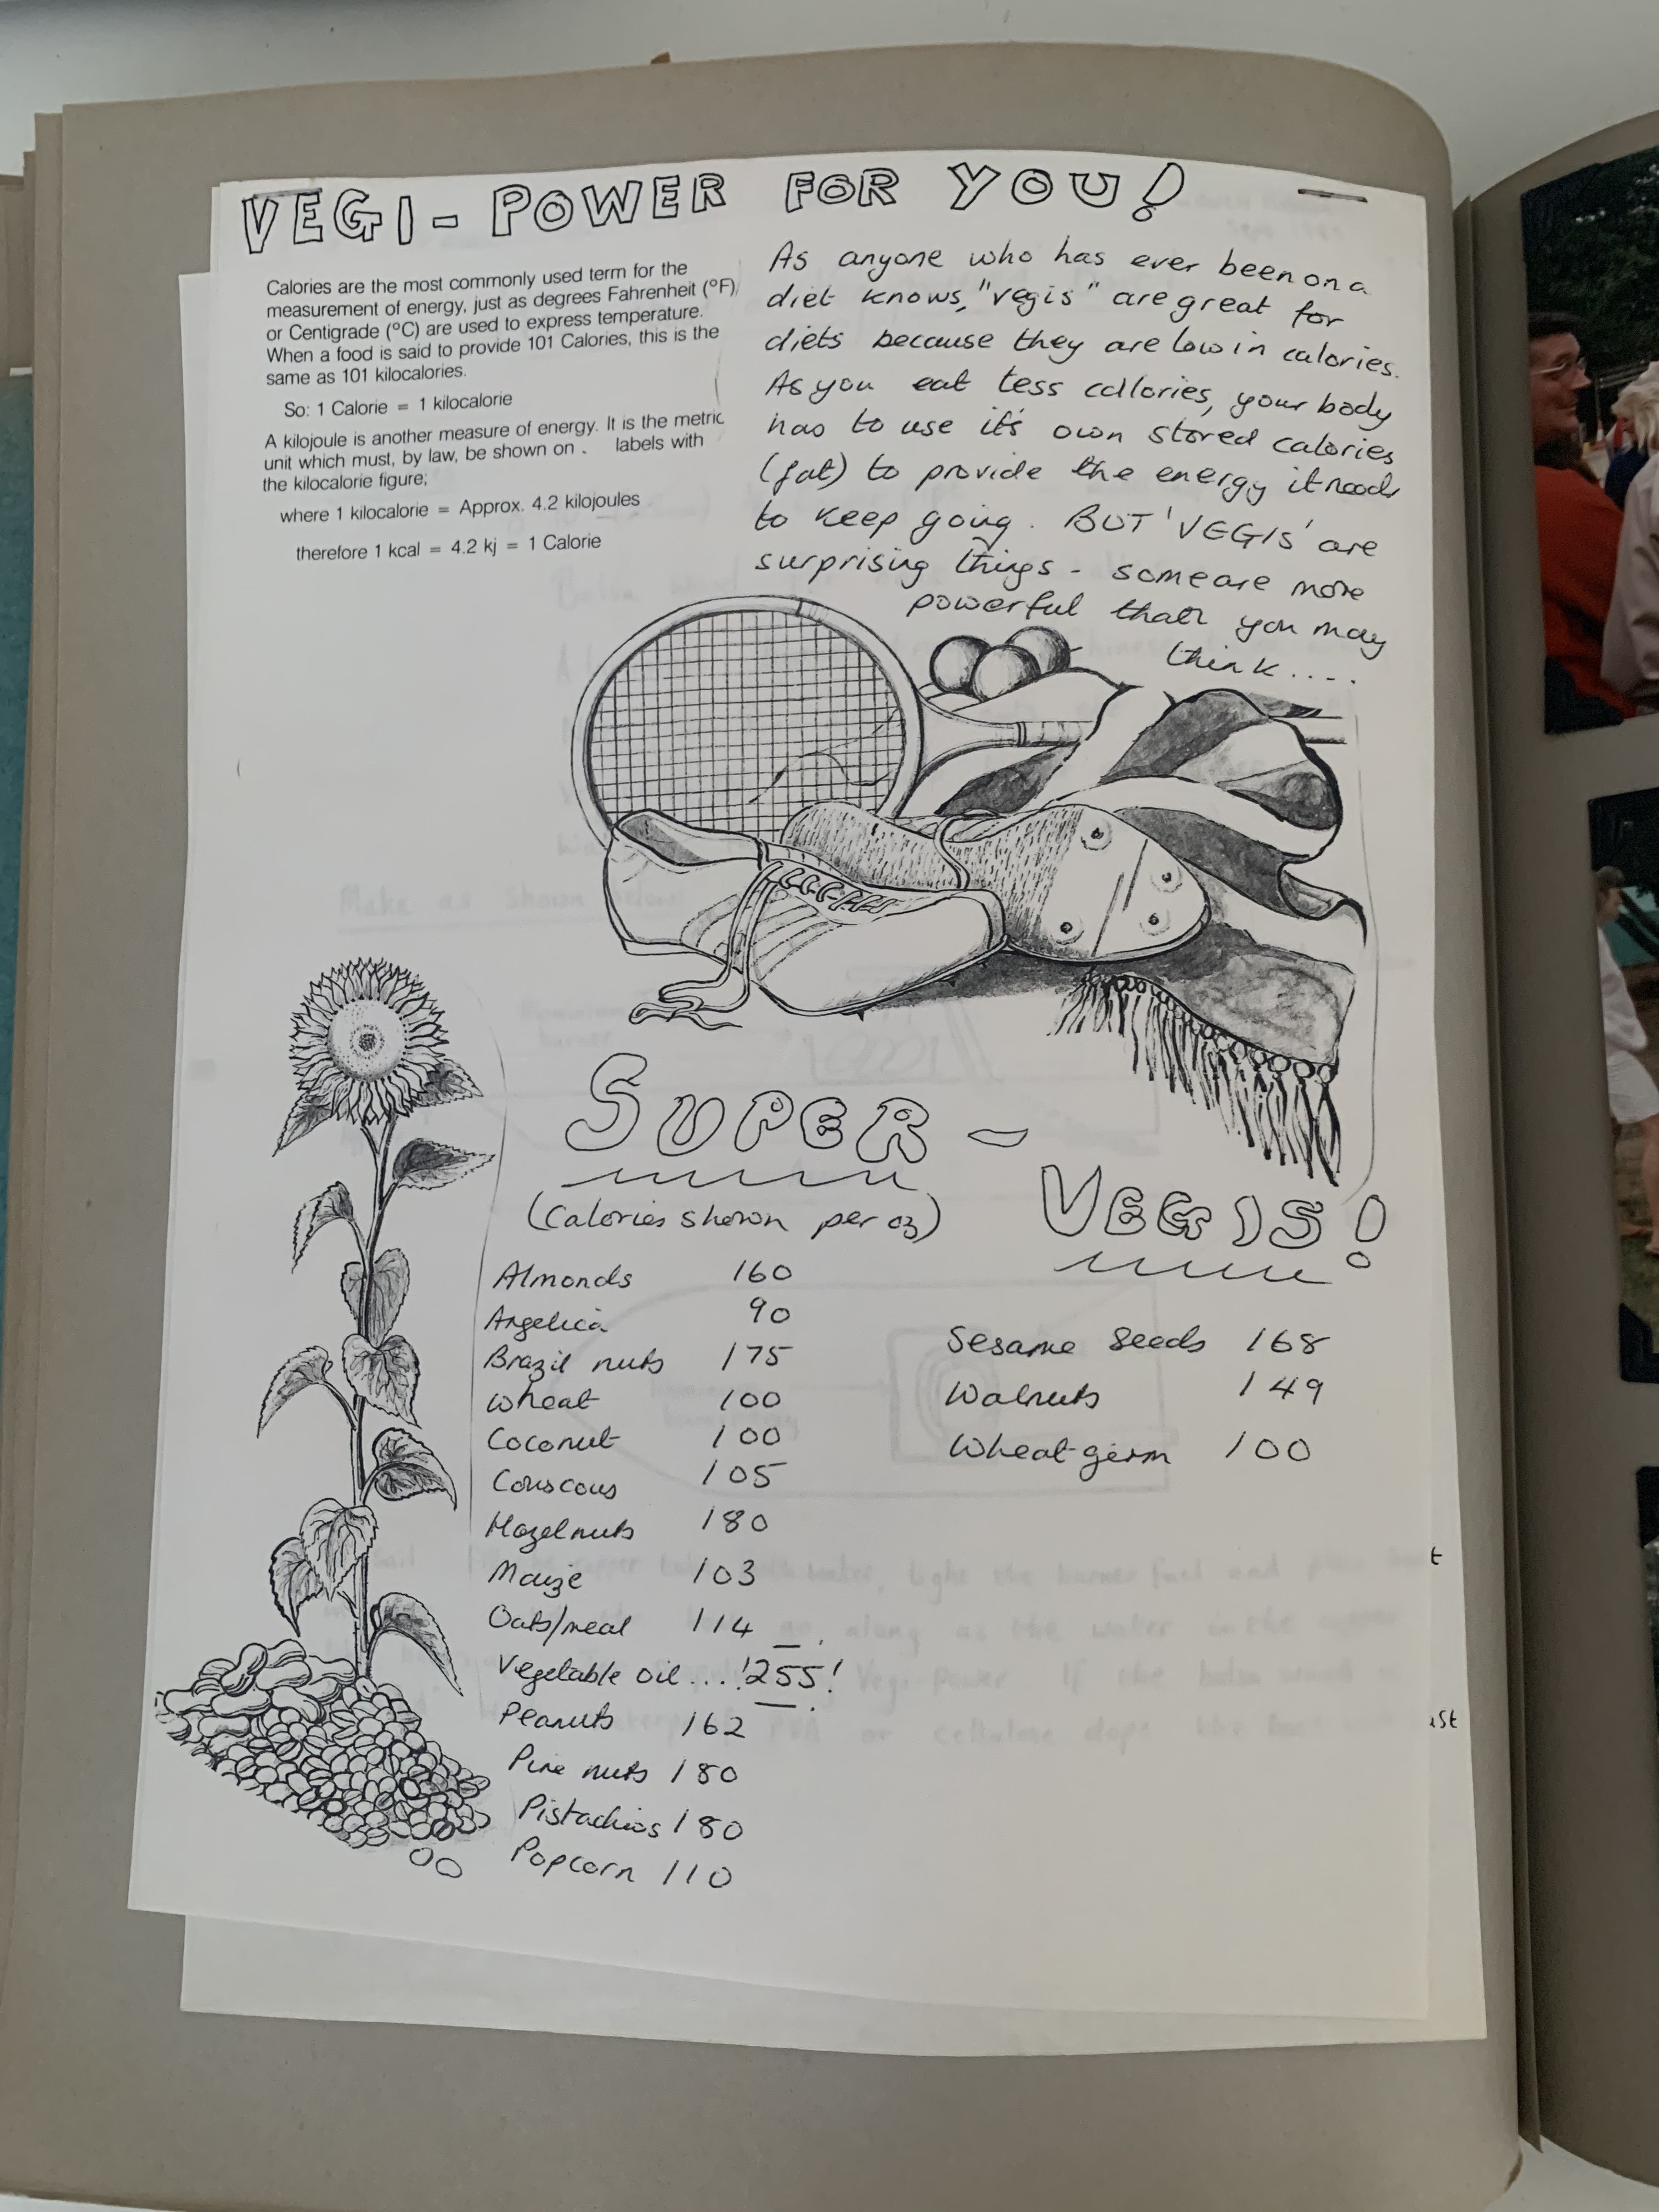 VEGI - POWER FOR YOU!
Calories are the most commonly used term for the
measurement of energy, just as degrees Fahrenheit (°F)
or Centigrade (°C) are used to express temperature.
When a food is said to provide 101 Calories, this is the
same as 101 kilocalories.
So: 1 Calorie = 1 kilocalorie
A kilojoule is another measure of energy. It is the metric
unit which must, by law, be shown on . labels with
the kilocalorie figure;
where 1 kilocalorie = Approx. 4.2 kilojoules
therefore 1 kcal = 4.2 kj = 1 Calorie
As anyone who has ever been on a
diet knows, "vegis" are great for
diets because they are low in calories.
As you eat less calories, your body
has to use it's own stored calories
(fat) to provide the energy it needs
to keep going. BUT 'VEGIS' are
surprising things - some are more
powerful than you may
think....
SUPER -
VEGIS!
(Calories shown per oz)
Almonds 160
Angelica 90
Brazil nuts 175
Wheat 100
Coconut 100
Couscous 105
Hazelnuts 180
Maize 103
Oats/meal 114
Vegetable oil....!255!
Peanuts 162
Pine nuts 180
Pistachios 180
Popcorn 110
Sesame Seeds 168
Walnuts 149
Wheat-germ 100
Make as shown below
light the burner fuel and
along as the water in the
Vegi-power If the balsa wood
PVA or cellulose dope the